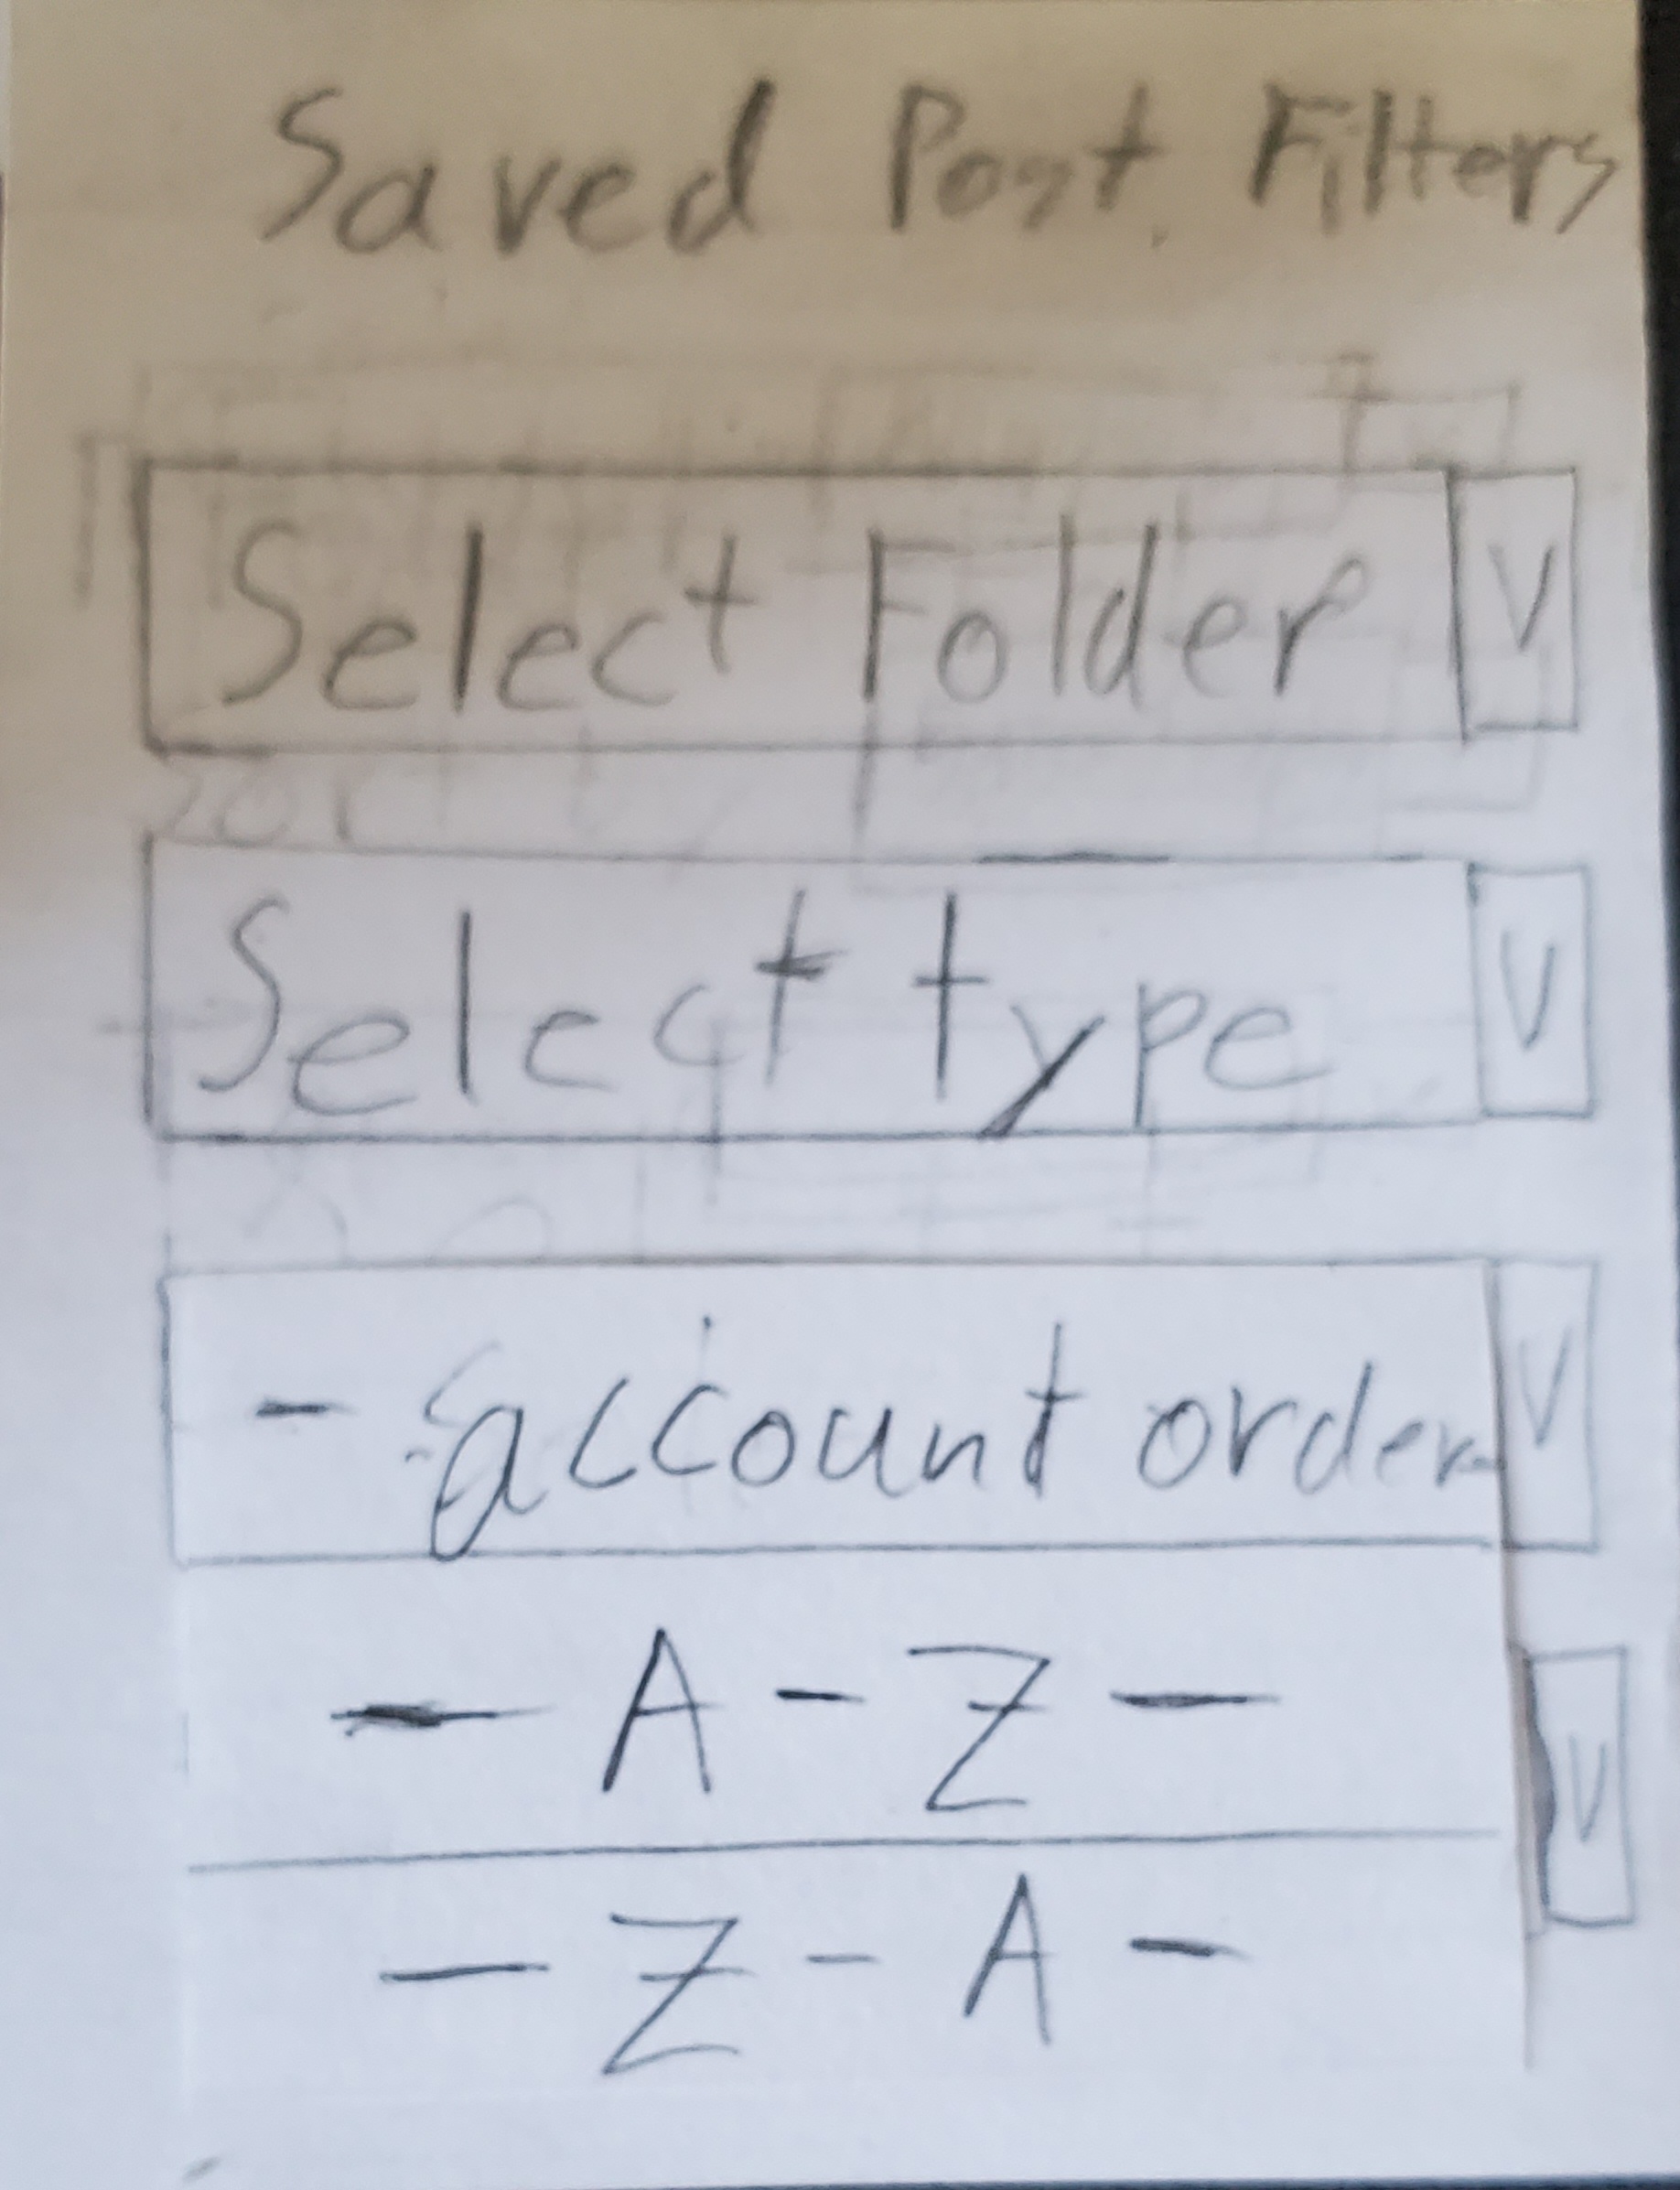 Saved Post Filters
Select Folder V
Select type V
- account order V
- A - Z -
V
- Z - A -